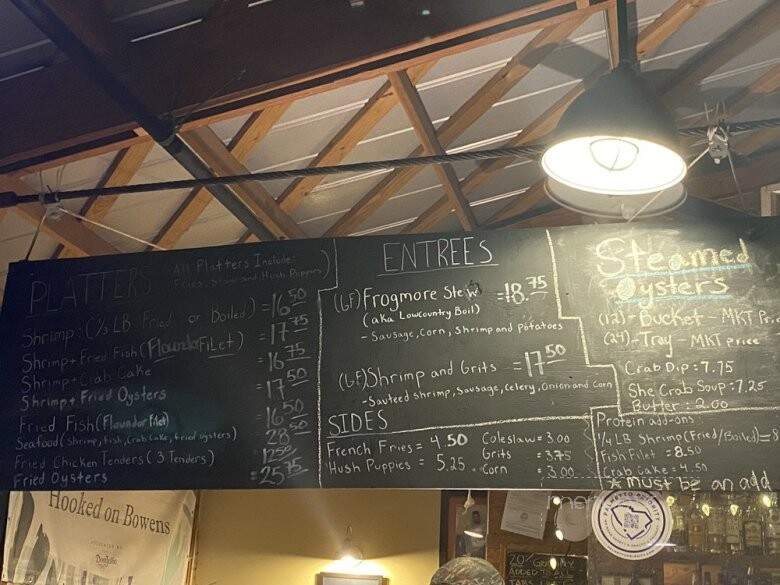 PLATTERS
All Platters Include:
Fries, Slaw and Hush Puppies
Shrimp: (1/2 Lb Fried or Boiled) = 16.50
Shrimp + Fried Fish (Flounder FiLet) = 17.75
Shrimp + Crab Cake = 16.75
Shrimp + Fried Oysters = 17.50
Fried Fish (Flounder filet) = 16.50
Seafood (Shrimp, fish, crab cake, fried oysters) = 28.50
Fried Chicken Tenders (3 Tenders) = 12.50
Fried Oysters = 25.75
ENTREES
(GF) Frogmore Stew = 18.75
(aka Lowcountry Boil)
- Sausage, Corn, Shrimp and Potatoes
(GF) Shrimp and Grits = 17.50
- Sauteed shrimp, Sausage, Celery, Onion and Corn
SIDES
French Fries = 4.50
Hush Puppies = 5.25
Coleslaw = 3.00
Grits = 3.75
Corn = 3.00
Steamed
Oysters
(12) - Bucket - MKT Price
(24) - Tray - MKT price
Crab Dip: 7.75
She Crab Soup: 7.25
Butter: 2.00
Protein add-ons
1/4 LB Shrimp (Fried/Boiled) = 8
Fish Filet = 8.50
Crab Cake = 4.50
* must be an add
Hooked on Bowens
PALMETTO PRIORITY
20%
ADDED TO